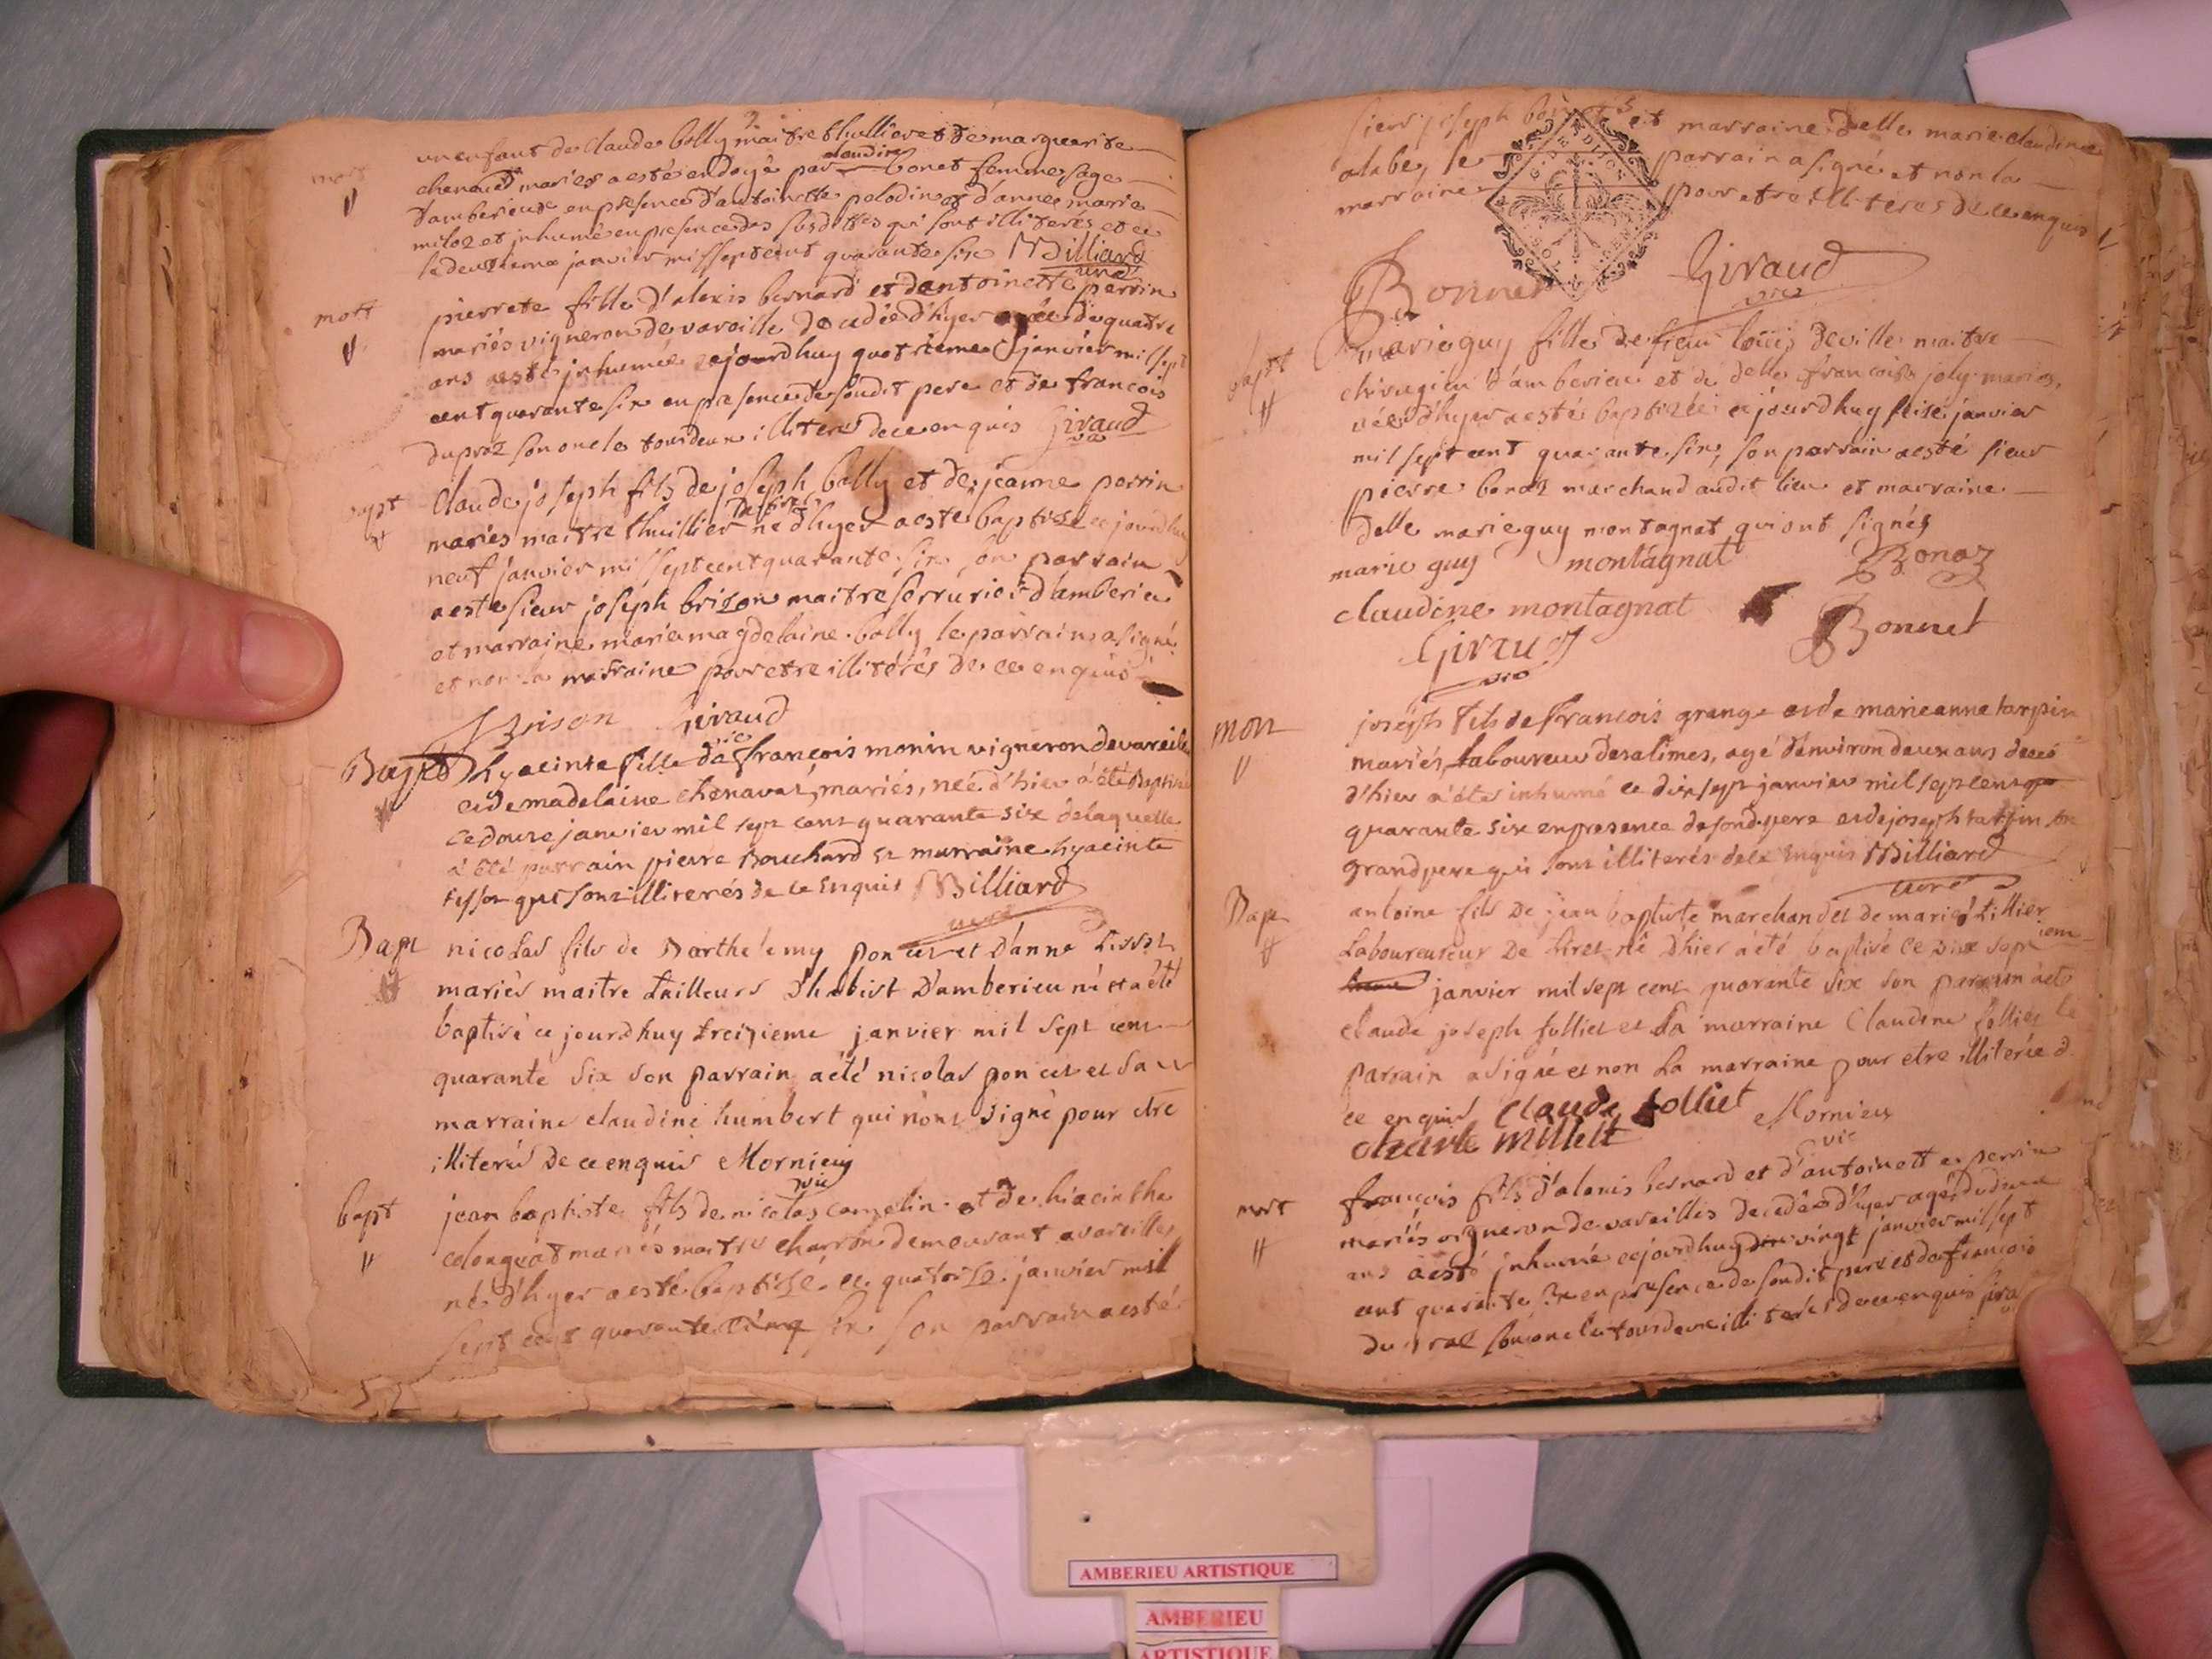 mort
un enfant de Claude bolly maitre thuillier et de marguerite
chenavat mariés a esté endoyé par claudine bonet femme sage
d'amberieux en presence d'antoinette palodin et d'anne marie
miloz et inhumé en presence des susdittes qui sont illiterés et ce
le deuxieme janvier mil sept cent quarante six Billiard
curé
mort
pierrete fille d'alexis bernard et d'antoinette perrin
mariés vigneron de vareille decedée d'hyer agée de quatre
ans aesté inhumée cejourdhuy quatrieme janvier mil sept
cent quarante six en presence de sondit pere et de francois
duproz son oncle tousdeux illiterés de ce enquis Giraud
vic
bapt
Claude joseph fils de joseph bolly et de jeanne perrin
mariés maitre thuillier né d'hyer aeste baptisé ce jourdhuy
neuf janvier mil sept cent quarante six son parrain
aeste sieur joseph brizon maitre serrurier d'amberieu
et marraine marie magdelaine bolly le parrain a signé
et non la marraine pour etre illitérés de ce enquis
Brison Giraud
vic
Bapt
hyacinte fille de françois monin vigneron de vareille
et de madelaine chenavat, mariés, neé d'hier a été Baptisée
ce douze janvier mil sept cent quarante six de laquelle
a été parrain pierre Bouchard et marraine hyacinte
tissot qui sont illiterés de ce enquis Billiard
curé
Bapt
nicolas fils de Barthelemy poncet et d'anne tissot
mariés maitre tailleurs d'habist D'amberieu né et a été
baptisé ce jourdhuy treizieme janvier mil sept cent
quarante six son parrain a été nicolas poncet et sa
marraine claudine humbert qui n'ont signé pour etre
illiterés De ce enquis Mornieu
vic
bapt
jean baptiste fils de nicolas comelin et de hiacinthe
colongeat mariés maitre charron demeurant a vareilles
né d'hyer aesté baptisé ce quatorse janvier mil
sept cent quarante cinq six son parrain aesté
sieur joseph et marraine delle marie claudine
alabe, le parrain a signé et non la
marraine pour etre illiteres de ce enquis
Bonnet Giraud
vic
bapt
marie guy fille de sieur loüis deville maitre
chirugien d'amberieu et de delle francoise joly mariés,
née d'hyer aesté baptizée cejourdhuy seise janvier
mil sept cent quarante six, son parrain aesté sieur
pierre bonaz marchand audit lieu et marraine
delle marie guy montagnat qui ont signés
marie guy montagnat Bonaz
claudine montagnat Bonnet
Giraud
vic
mort
joseph fils de francois grange et de marieanne tarpin
mariés, laboureur des alimes, agé d'environ deux ans decedé
d'hier a été inhumé ce dixsept janvier mil sept cent
quarante six en presence de sond pere et de joseph tarpin son
grand pere qui sont illiterés de ce enquis Billiard
curé
Bapt
antoine fils de jean baptiste marchand et de marie tillier
Laboureur De tiret né d'hier a été baptisé ce dix sept iem
janvier mil sept cent quarante six son parrain a eté
claude joseph folliet et La marraine Claudine folliet le
parrain a signé et non La marraine pour etre illiterée d
ce enquis Claude folliet Mornieu
vic
charle Millett
mort
francois fils d'alexis bernard et d'antoinette perrin
mariés vigneron de vareilles decedé d'hyer agé de deux
ans aesté inhumé cejourdhuy vingt janvier mil sept
cent quarante six en presence de sondit pere et de françois
du praz son oncle tousdeux illiterés de ce enquis Gira
AMBERIEU ARTISTIQUE
AMBERIEU
ARTISTIQUE